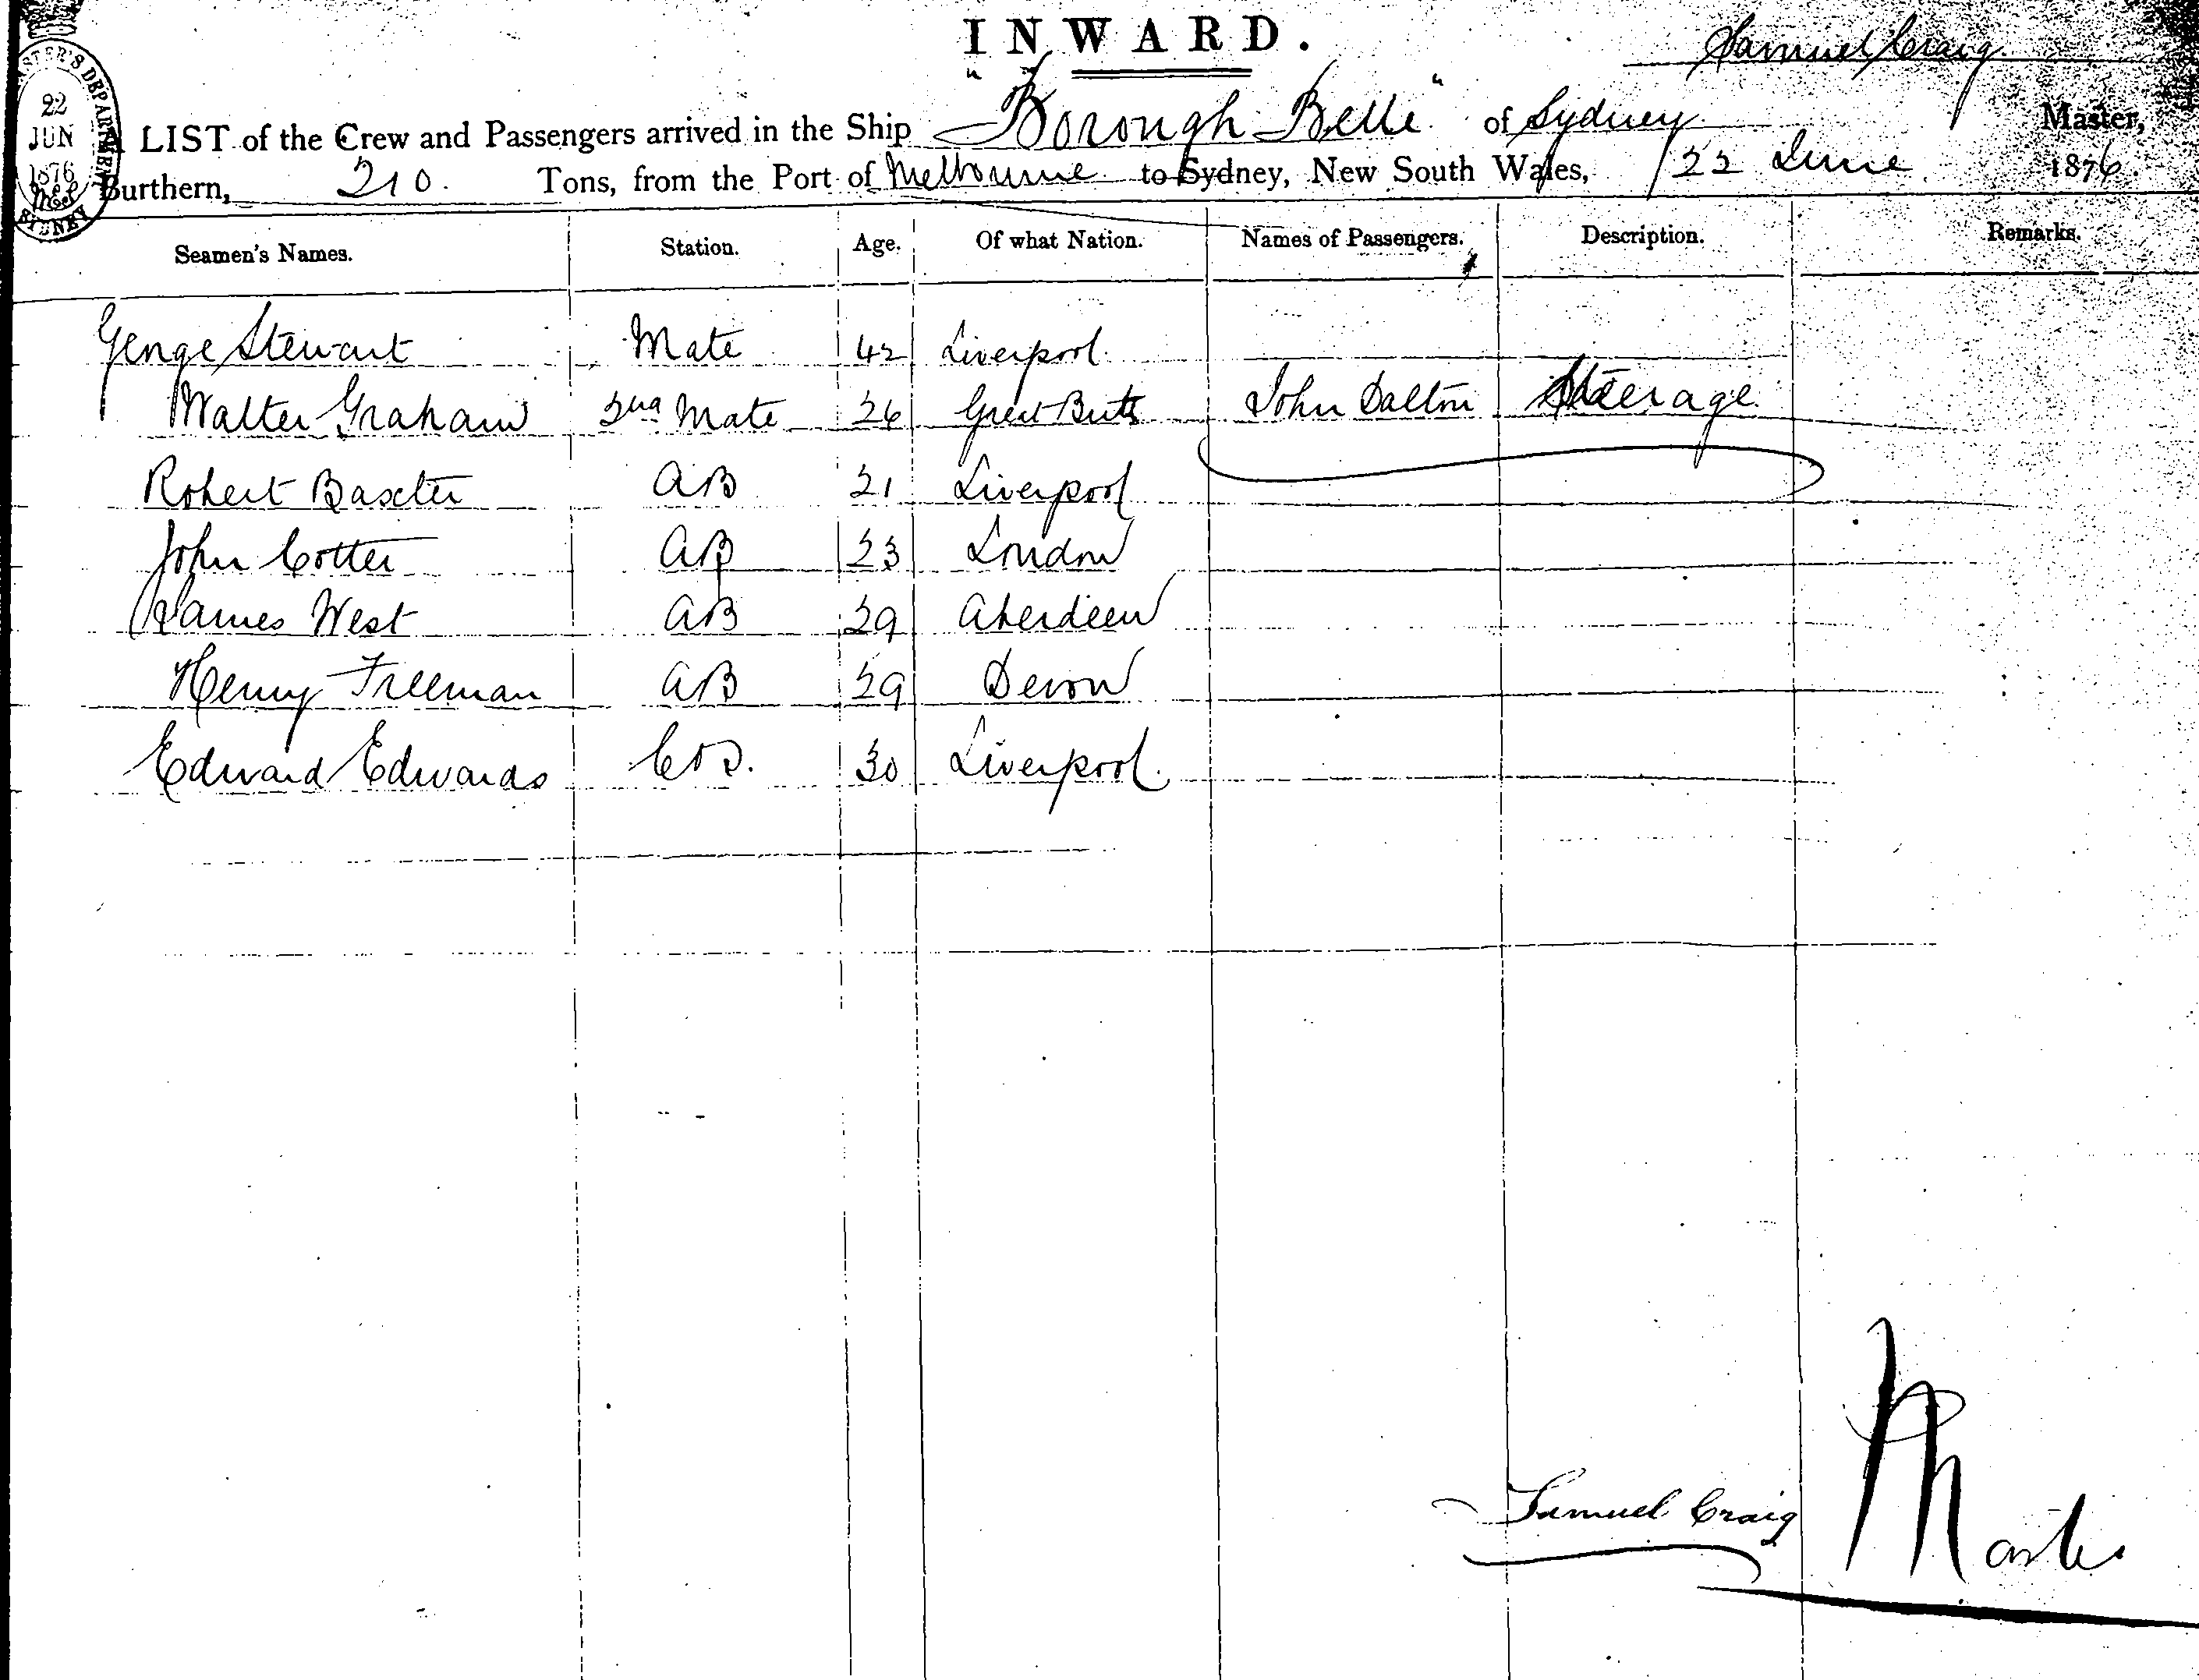 INWARD.
Samuel Craig
A LIST of the Crew and Passengers arrived in the Ship "Borough Belle" of Sydney Master,
Burthern, 210. Tons, from the Port of Melbourne to Sydney, New South Wales, 22 June 1876
22
JUN
1876
SYDNEY
Seamen's Names. Station. Age. Of what Nation. Names of Passengers. Description. Remarks.
George Stewart Mate 42 Liverpool
Walter Graham 2nd Mate 26 Great Brit John Dalton Steerage
Robert Baxter AB 21 Liverpool
John Cotter AB 23 London
James West AB 29 Aberdeen
Henry Freeman AB 29 Devon
Edward Edwards 30 Liverpool.
Samuel Craig Master